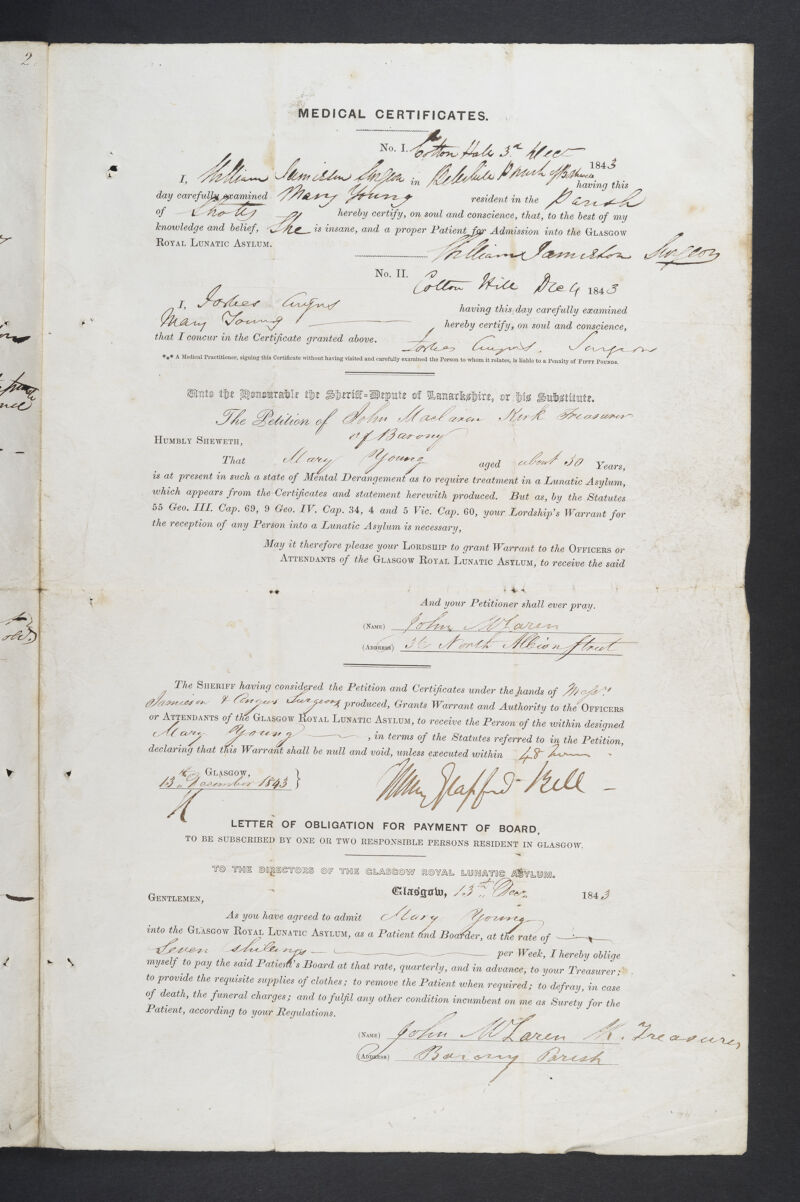 2
MEDICAL CERTIFICATES.
No. I. Cotton Hall 3d Decr 1843
I, William Jamieson Surgeon in Bellshill Parish of Bothwell having this
day carefully examined Mary Young resident in the Parish
of Shotts hereby certify, on soul and conscience, that, to the best of my
knowledge and belief, She is insane, and a proper Patient for Admission into the GLASGOW
ROYAL LUNATIC ASYLUM.
William Jamieson Surgeon
No. II.
Cotton Hill Dec 4 1843
I, Forbes Angus having this day carefully examined
Mary Young hereby certify, on soul and conscience,
that I concur in the Certificate granted above.
Forbes Angus, Surgeon
*** A Medical Practitioner, signing this Certificate without having visited and carefully examined the Person to whom it relates, is liable to a Penalty of FIFTY POUNDS.
Unto the Honourable the Sheriff-Depute of Lanarkshire, or his Substitute.
The Petition of John Maclaren Kirk Treasurer
of Barony
HUMBLY SHEWETH,
That Mary Young aged about 30 Years,
is at present in such a state of Mental Derangement as to require treatment in a Lunatic Asylum,
which appears from the Certificates and statement herewith produced. But as, by the Statutes
55 Geo. III. Cap. 69, 9 Geo. IV. Cap. 34, 4 and 5 Vic. Cap. 60, your Lordship's Warrant for
the reception of any Person into a Lunatic Asylum is necessary,
May it therefore please your LORDSHIP to grant Warrant to the OFFICERS or
ATTENDANTS of the GLASGOW ROYAL LUNATIC ASYLUM, to receive the said
And your Petitioner shall ever pray.
(NAME) John McLaren
(ADDRESS) 36 North Albion Street
The SHERIFF having considered the Petition and Certificates under the hands of Messrs
Jamieson & Angus Surgeons produced, Grants Warrant and Authority to the OFFICERS
or ATTENDANTS of the GLASGOW ROYAL LUNATIC ASYLUM, to receive the Person of the within designed
Mary Young, in terms of the Statutes referred to in the Petition,
declaring that this Warrant shall be null and void, unless executed within 48 hours
GLASGOW,
13th December 1843
Henry Glassford Bell
LETTER OF OBLIGATION FOR PAYMENT OF BOARD,
TO BE SUBSCRIBED BY ONE OR TWO RESPONSIBLE PERSONS RESIDENT IN GLASGOW.
TO THE DIRECTORS OF THE GLASGOW ROYAL LUNATIC ASYLUM.
Glasgow, 13th Decr 1843
GENTLEMEN,
As you have agreed to admit Mary Young
into the GLASGOW ROYAL LUNATIC ASYLUM, as a Patient and Boarder, at the rate of
Seven shillings per Week, I hereby oblige
myself to pay the said Patient's Board at that rate, quarterly, and in advance, to your Treasurer;
to provide the requisite supplies of clothes; to remove the Patient when required; to defray, in case
of death, the funeral charges; and to fulfil any other condition incumbent on me as Surety for the
Patient, according to your Regulations.
(NAME) John McLaren K. Treasurer
(ADDRESS) Barony Parish